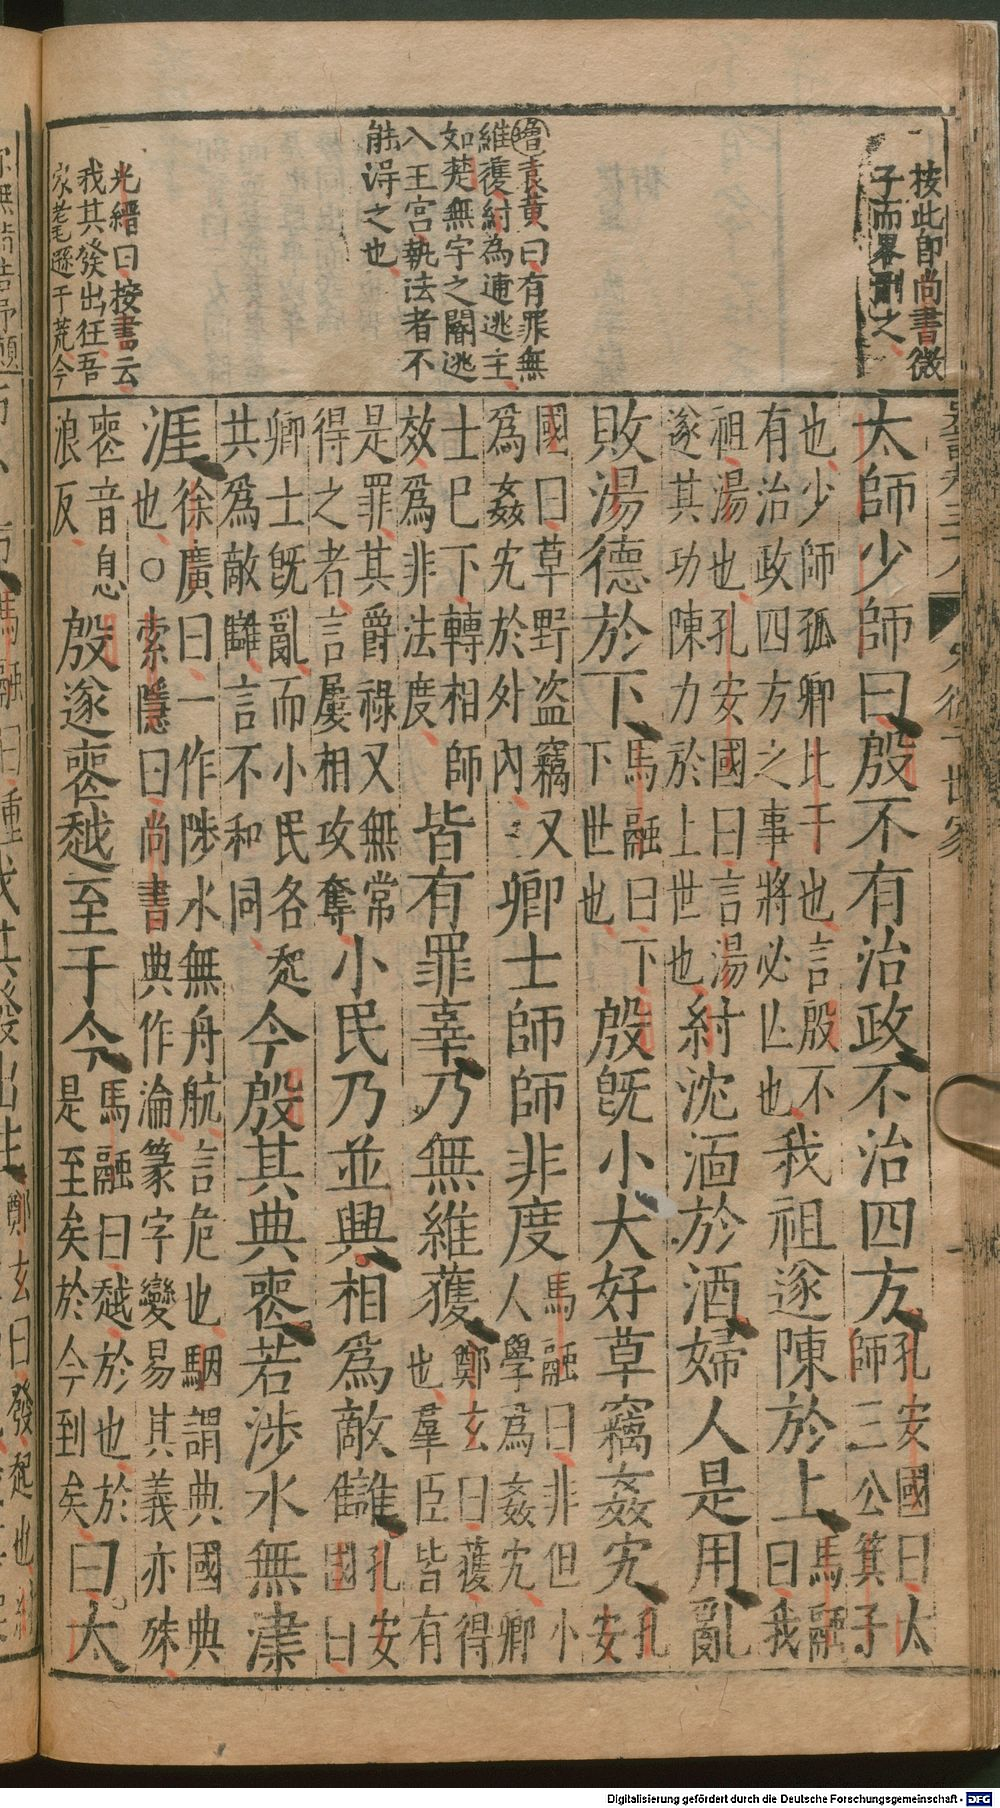 按此即尚書微
子而畧刪之
增袁黄曰有罪無
維獲紂為逋逃主
如楚無宇之閽逃
入王宮執法者不
能淂之也
光縉曰按書云
我其發出徃吾
家耄遜于荒今
太師少師曰殷不有治政不治四方孔安國曰太師三公箕子
也少師孤卿比干也言殷不有治政四方之事將必亾也我祖遂陳於上馬融曰我
祖湯也孔安國曰言湯遂其功陳力於上世也紂沈湎於酒婦人是用亂
敗湯德於下馬融曰下下世也殷旣小大好草竊姦宄孔安
國曰草野盜竊又爲姦宄於外內卿士師師非度馬融曰非但小人學爲姦宄卿
士巳下轉相師效爲非法度皆有罪辜乃無維獲鄭玄曰獲得也羣臣皆有
是罪其爵祿又無常得之者言屢相攻奪小民乃並興相爲敵讎孔安國曰
卿士旣亂而小民各起共爲敵讎言不和同今殷其典喪若涉水無津
涯徐廣曰一作陟水無舟航言危也駰謂典國典也○索隱曰尚書典作淪篆字變易其義亦殊
喪音息浪反殷遂喪越至于今馬融曰越於也於是至矣於今到矣曰太
Digitalisierung gefördert durch die Deutsche Forschungsgemeinschaft - DFG